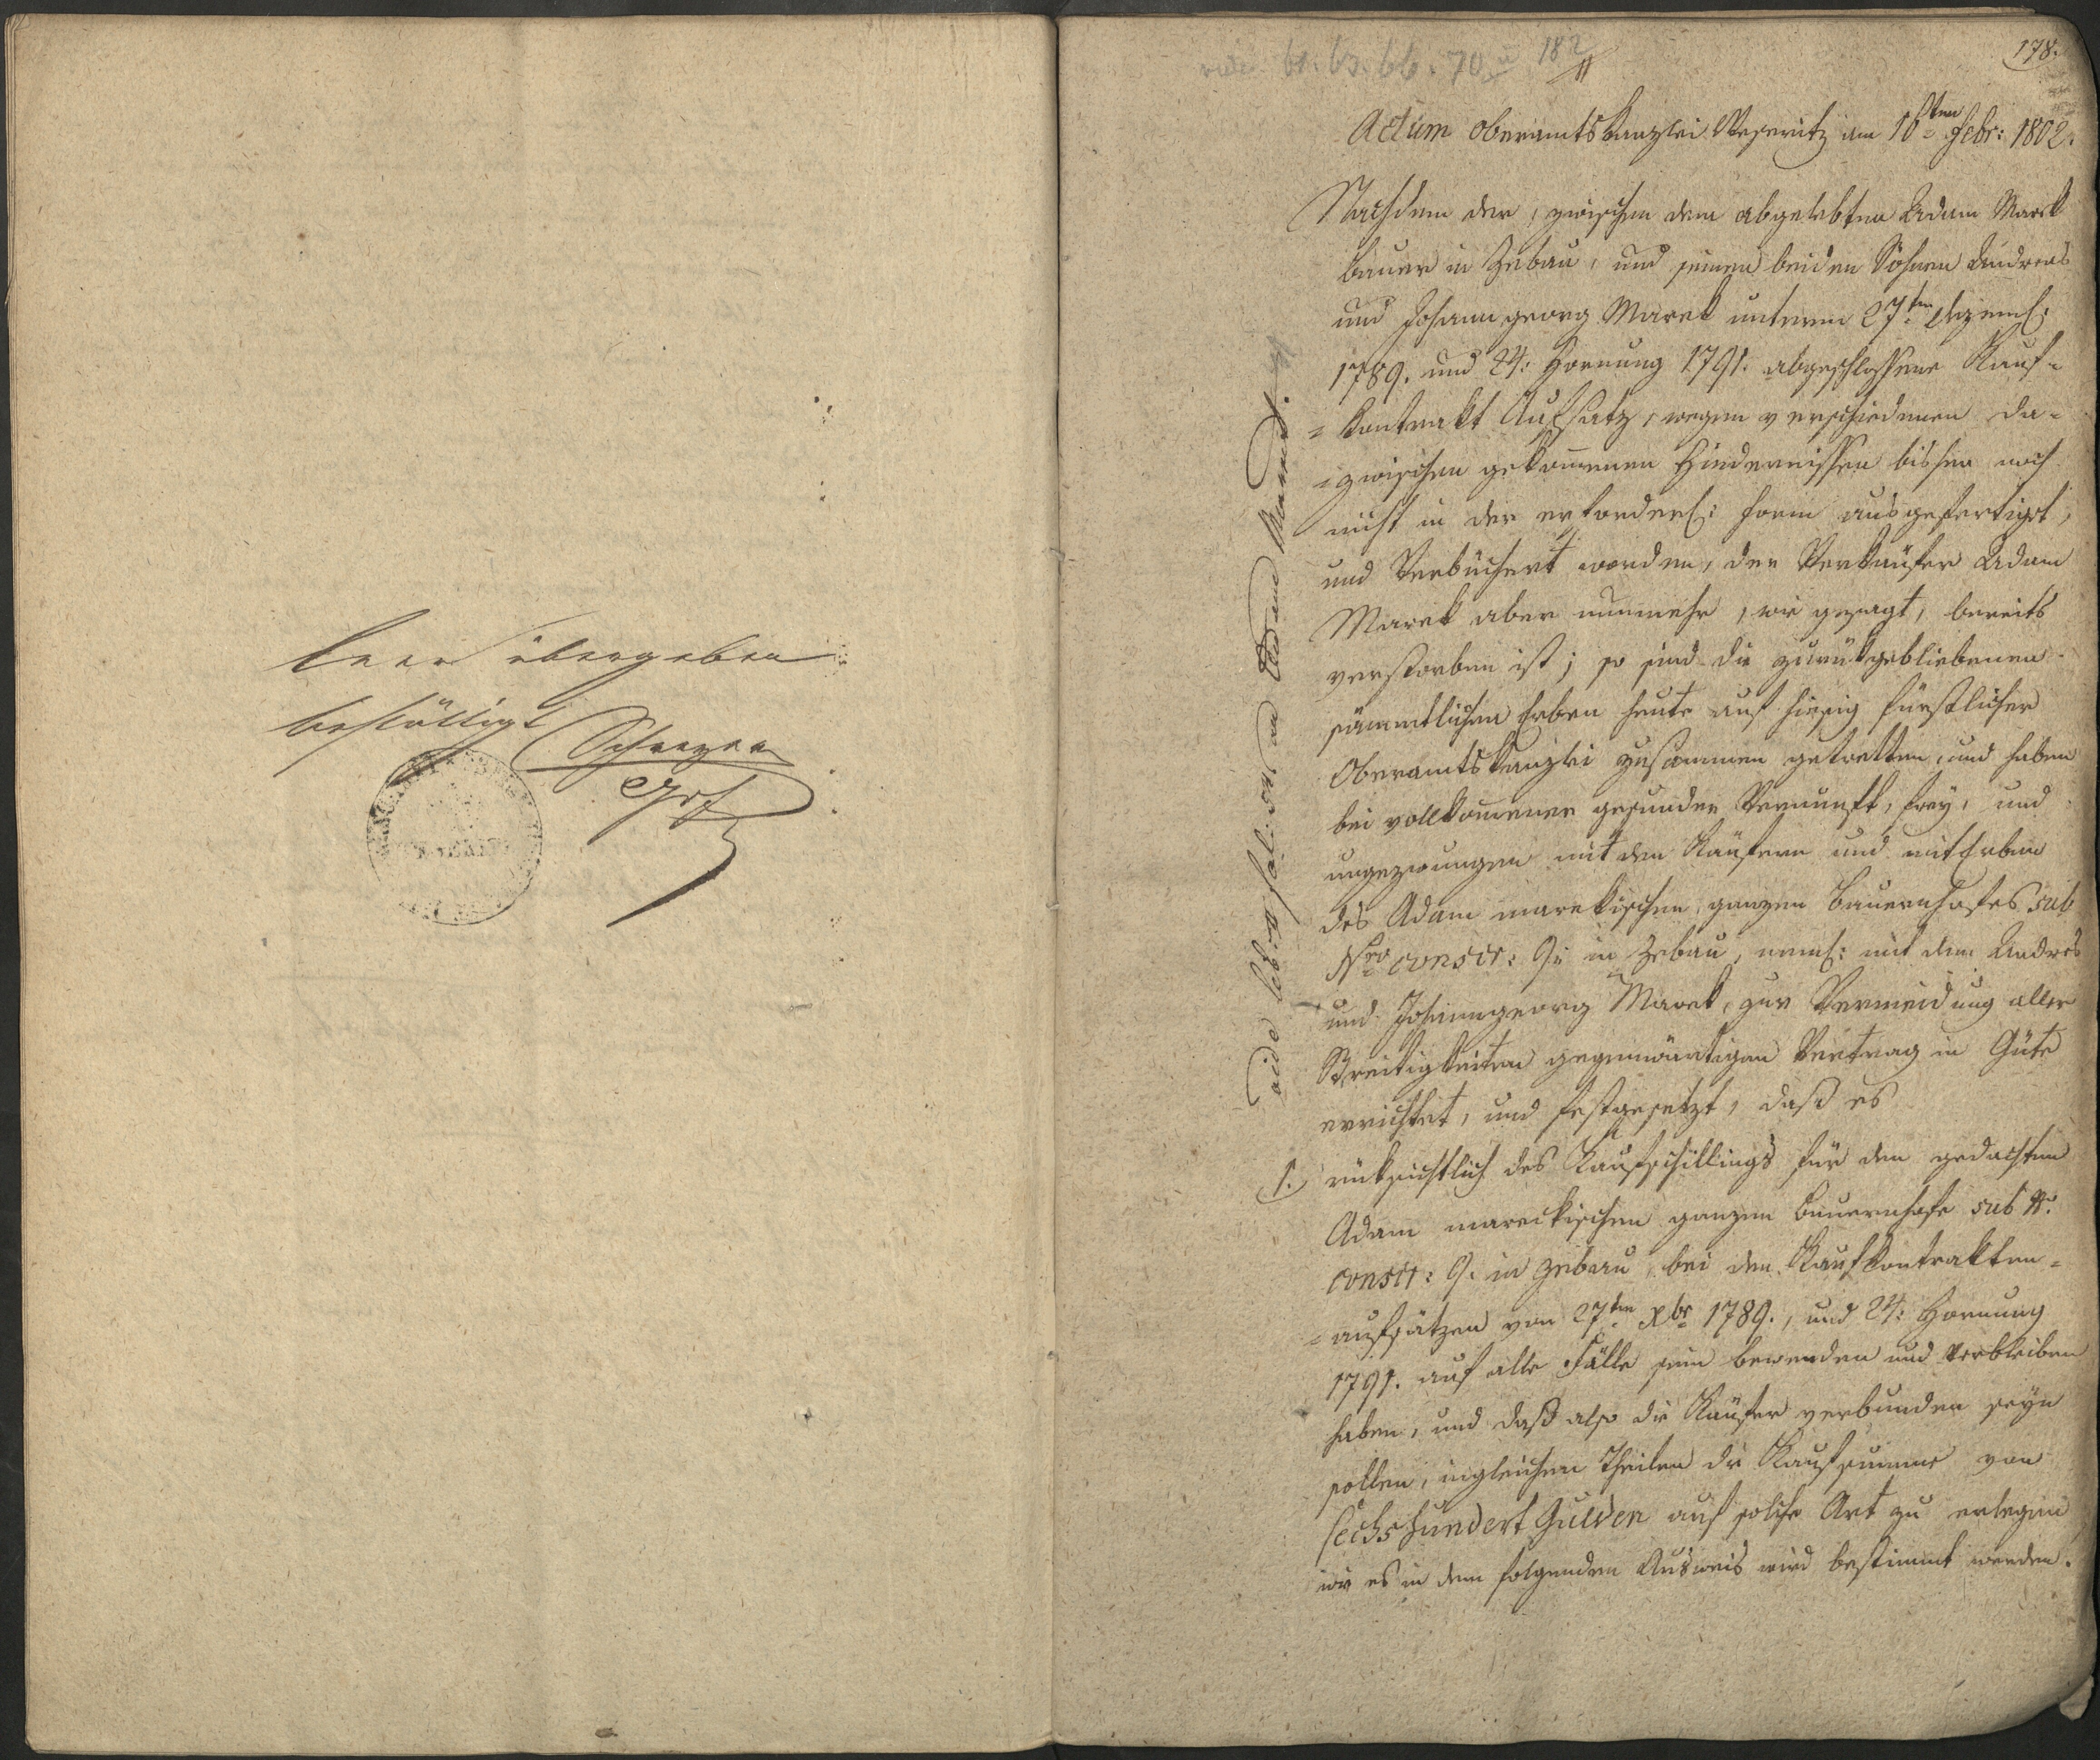 leer übergeben
bestättigt
vide 61. 63. 66. 70 u 182
178.
Actum Oberamtskanzlei Weseritz am 10ten Febr: 1802.
Nachdem der, zwischen dem abgelebten Adam Marek
Bauer in Zebau, und seinen beiden Söhnen Andreas
und Johann georg Marek unterm 27ten
1789. und 24: Hornung 1791. abgeschlossene Kauf-
=kontrakt Aufsatz, wegen verschiedenen da-
=zwischen gekommenen Hindernissen bisher noch
nicht in der erforderl: Form ausgefertigt,
und Verbüchert worden, der Verkäufer Adam
Marek aber nunmehr, wie gesagt, bereits
verstorben ist; so sind die zurükgebliebenen
sämmtlichen Erben heute auf hiesig fürstlicher
Oberamtskanzlei zusammen getretten, und haben
bei vollkommener gesunder Vernunft, frey, und
ungezwungen mit den Käufern und mitErben
des Adam marekischen ganzen Bauernhofes sub
Nro conscr: 9: in Zebau, neml: mit dem Andres
und Johanngeorg Marek, zur Vermeidung aller
Streitigkeiten gegenwärtigen Vertrag in Güte
errichtet, und festgesetzt, daß es
1. rüksichtlich des Kaufschillings für den gedachten
Adam mareckischen ganzen Bauernhofe sub N:
conscr: 9. in Zebau bei den Kaufkontrakten-
=aufsätzen von 27ten Xbr 1789., und 24: Hornung
1791. auf alle Fälle sein bewenden und verbleiben
haben, und daß also die Käufer verbunden seyn
sollen, ingleichen Theilen die Kaufsumme von
sechshundert Gulden auf solche Art zu erlegen
wie es in dem folgenden Ausweis wird bestimmt werden.